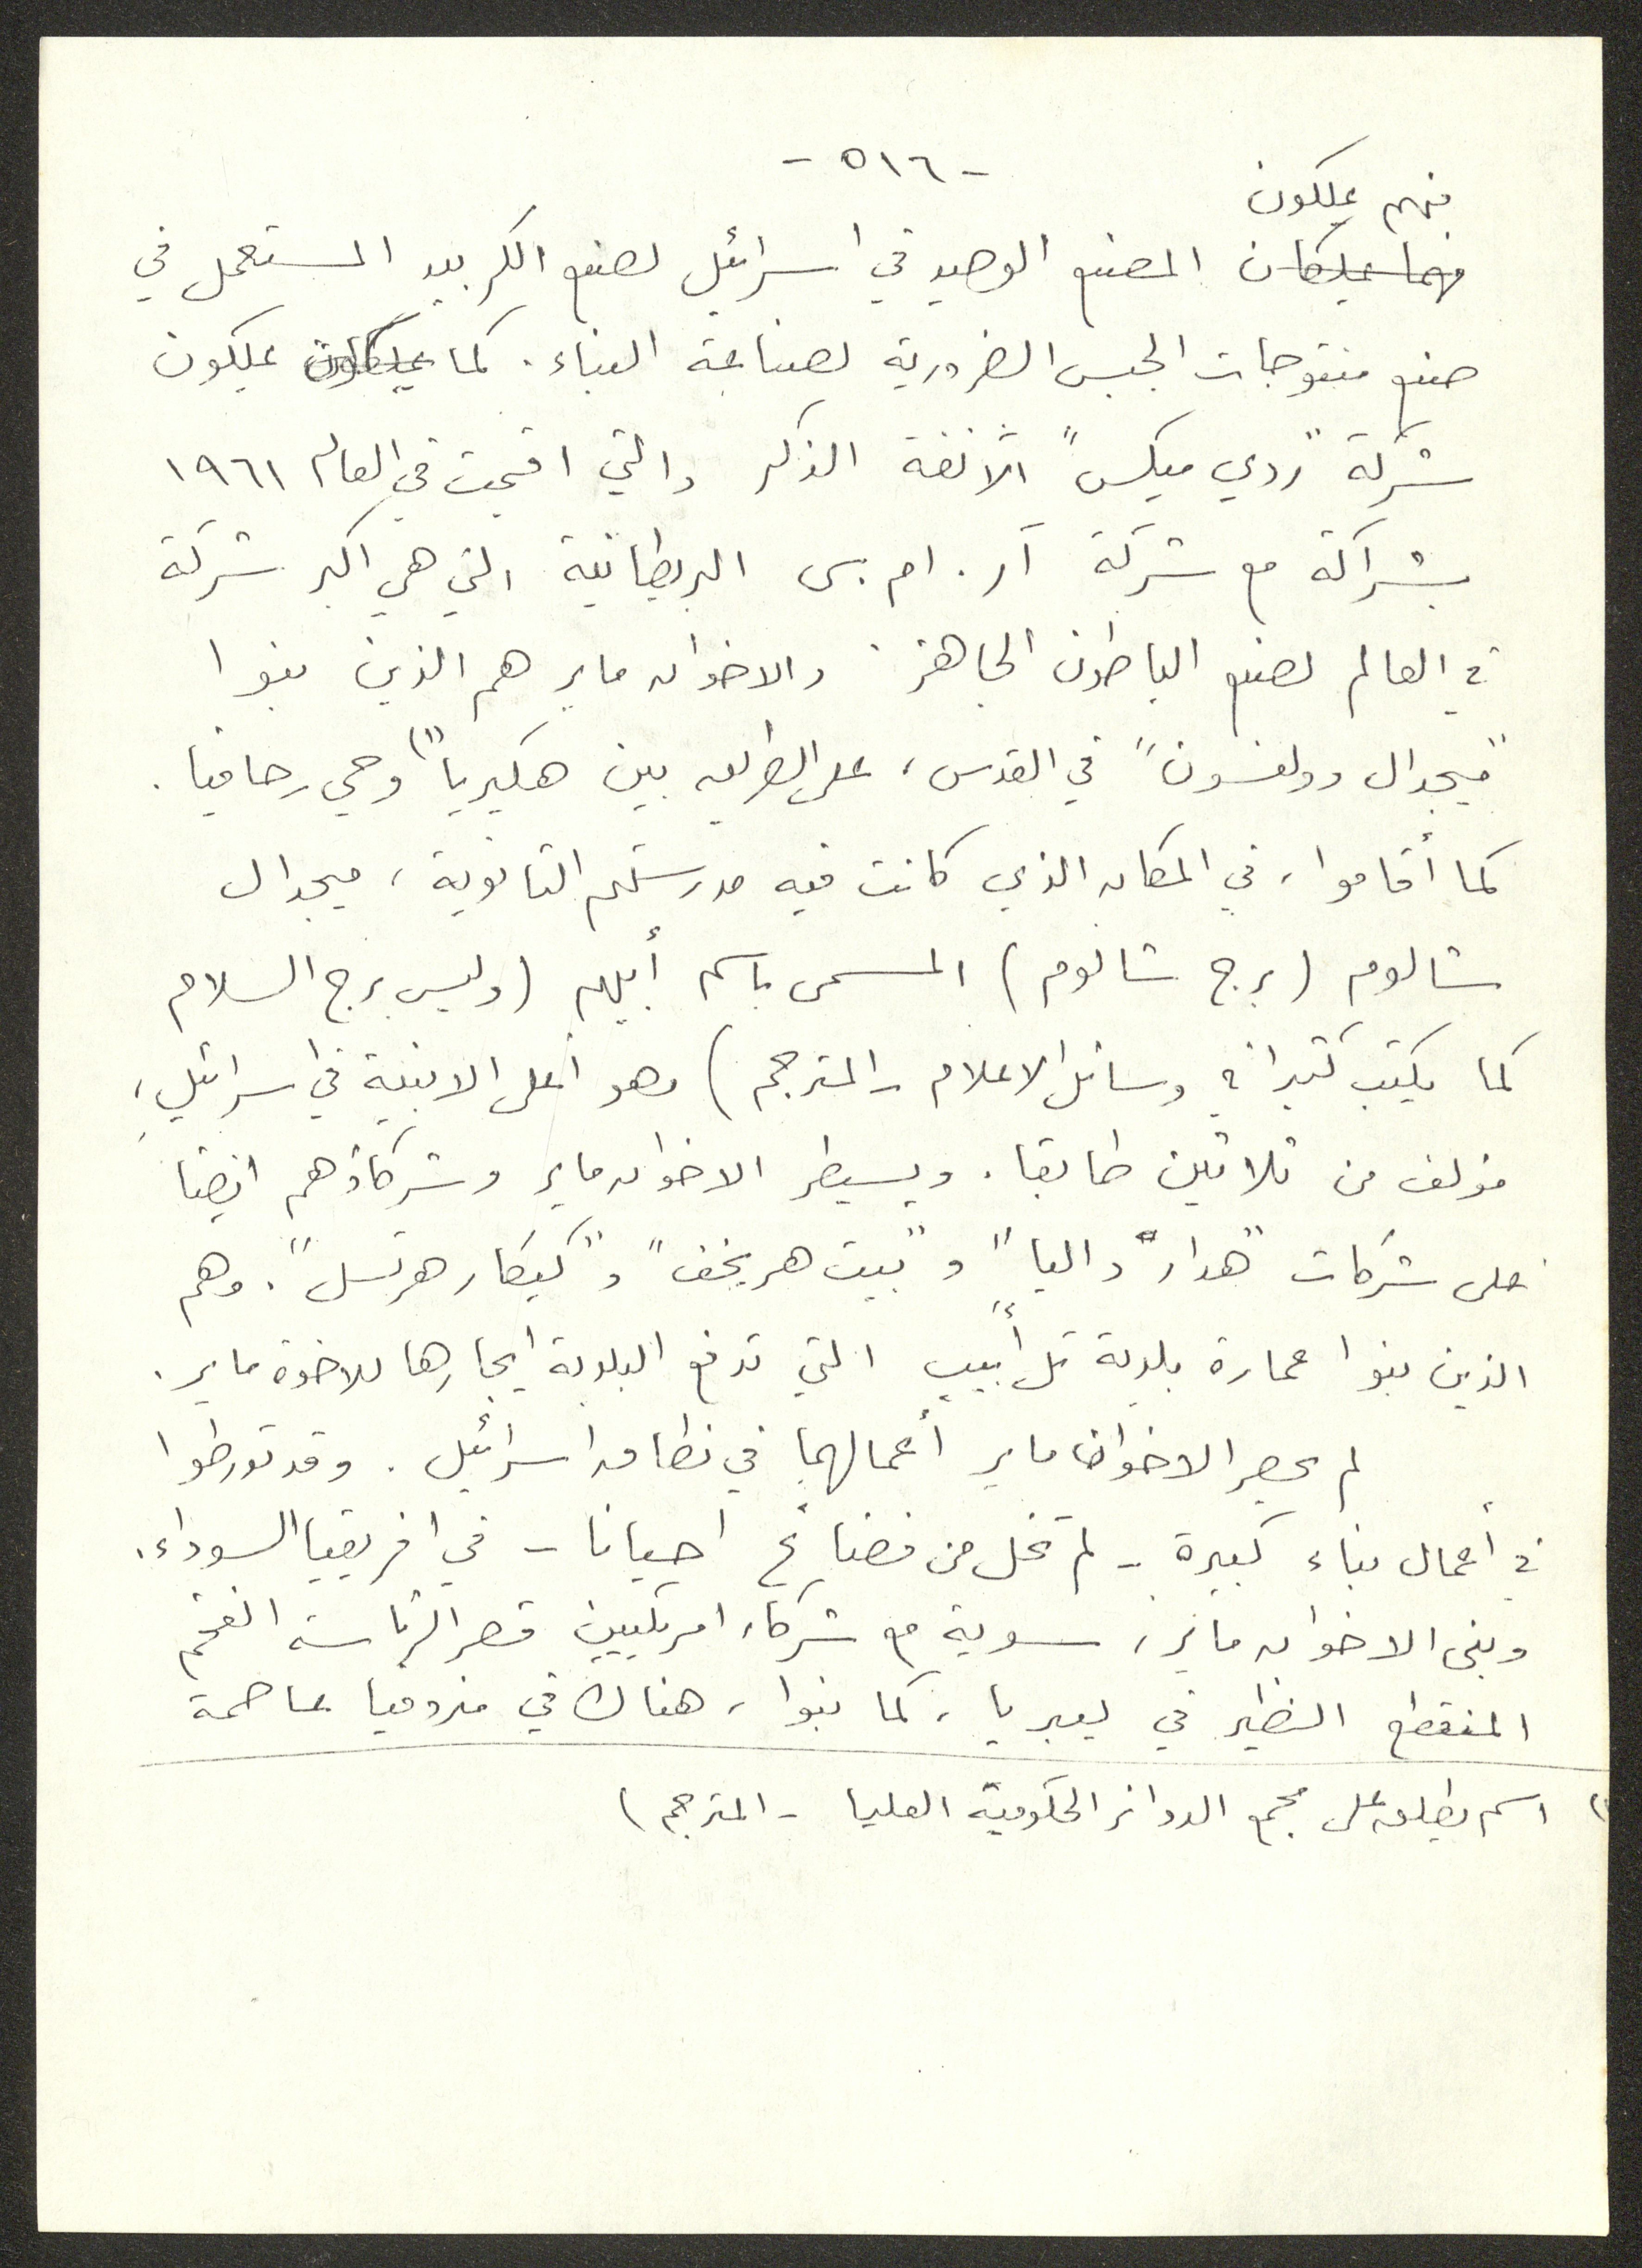 - ٥١٦ -
فهم يملكون
فهما يملكان المصنع الوحيد في اسرائيل لصنع الكربيد المستعمل في
صنع منتوجات الجبس الضرورية لصناعة البناء. كما يملكون يملكون
شركة "ردي ميكس" الآنفة الذكر والتي اقيمت في العام ١٩٦١
بشراكة مع شركة آر. ام. سي البريطانية التي هي اكبر شركة
في العالم لصنع الباطون الجاهز. والاخوان ماير هم الذين بنوا
"ميجدال وولفسون" في القدس، على الطريق بين هكيريا" ١) وحي رحافيا.
كما أقاموا، في المكان الذي كانت فيه مدرستهم الثانوية، ميجدال
شالوم (برج شالوم) المسمى باسم أبيهم (وليس برج السلام
كما يكتب كثيرا في وسائل الاعلام - المترجم) وهو أعلى الابنية في اسرائيل،
مؤلف من ثلاثين طابقا. ويسيطر الاخوان ماير وشركاؤهم ايضا
على شركات "هدار داليا" و"بيت هريخف" و"كيكار هرتسل". وهم
الذين بنوا عمارة بلدية تل أبيب التي تدفع البلدية ايجارها للاخوة ماير.
لم يحصر الاخوان ماير أعمالهما في نطاق اسرائيل. وقد تورطوا
في أعمال بناء كبيرة - لم تخل من فضائح احيانا - في افريقيا السوداء.
وبنى الاخوان ماير، سوية مع شركاء امريكيين قصر الرئاسة الفخم
المنقطع النظير في ليبريا، كما بنوا، هناك في منروفيا عاصمة
١) اسم يطلق على مجمع الدوائر الحكومية العليا - المترجم)